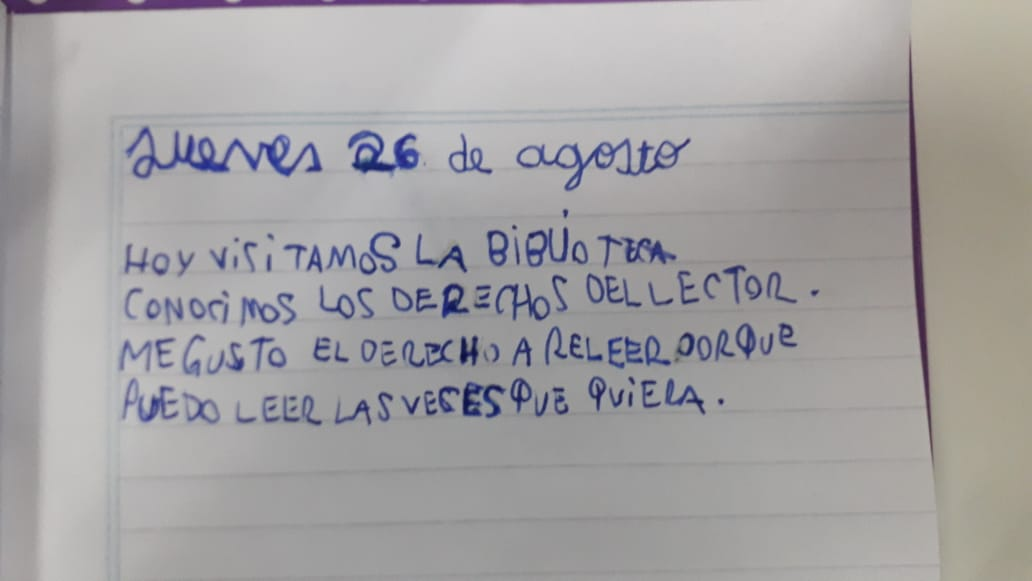 Jueves 26 de agosto
HOY VISITAMOS LA BIBLIOTECA.
CONOCIMOS LOS DERECHOS DEL LECTOR.
ME GUSTO EL DERECHO A RELEER PORQUE
PUEDO LEER LAS VESES QUE QUIERA.